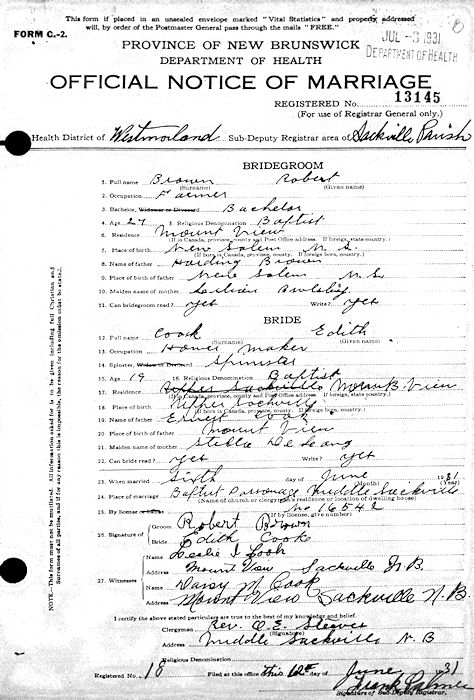 This form if placed in an unsealed envelope marked "Vital Statistics" and properly addressed
will, by order of the Postmaster General pass through the mails "FREE."
FORM C.-2.
JUL -3 1931
DEPARTMENT OF HEALTH
PROVINCE OF NEW BRUNSWICK
DEPARTMENT OF HEALTH
OFFICIAL NOTICE OF MARRIAGE
REGISTERED No. 13145
(For use of Registrar General only.)
Health District of Westmorland Sub-Deputy Registrar area of Sackville Parish
BRIDEGROOM
1. Full name Brown Robert
(Surname) (Given name)
2. Occupation Farmer
3. Bachelor, Widower or Divorced Bachelor
4. Age 27 5. Religious Denomination Baptist
6. Residence Mount View
(If in Canada, province, county and Post Office address. If foreign, state country.)
7. Place of birth New Salem N.S.
(If born in Canada, province, county. If foreign born, country.)
8. Name of father Harding Brown
9. Place of birth of father New Salem N.S.
10. Maiden name of mother
11. Can bridegroom read? yes Write? yes
BRIDE
12. Full name Cook Edith
(Surname) (Given name)
13. Occupation House Maker
14. Spinster, Widow or Divorced Spinster
15. Age 19 16. Religious Denomination Baptist
17. Residence Upper Sackville Mount View
(If in Canada, province, county and Post Office address. If foreign, state country.)
18. Place of birth Upper Sackville
(If born in Canada, province, county. If foreign born, country.)
19. Name of father Ernest Cook
20. Place of birth of father Mount View
21. Maiden name of mother Stella
22. Can bride read? yes Write? yes
23. When married Sixth day of June 1931
(Month) (Year)
24. Place of marriage Baptist Parsonage Middle Sackville
(Name of church or clergyman's residence or location of dwelling house)
25. By license or banns No 16542
(If by license, give number)
26. Signature of Groom Robert Brown
Bride Edith Cook
27. Witnesses Name Leslie I Cook
Address Mount View Sackville N.B.
Name Darcy M. Cook
Address Mount View Sackville N.B.
I certify the above stated particulars are true to the best of my knowledge and belief.
Clergyman Rev. O.E. Steeves
(Signature)
Address Middle Sackville N.B
Religious Denomination
Registered No. 10 Filed at this office this 12th June 31
Frank Palmer
Signature of Sub-Deputy Registrar.
NOTE.—This form must not be mutilated. All information asked for is to be given including full Christian and
Surnames of all parties, and if for any reason this is impossible, the reason for the omission must be stated.